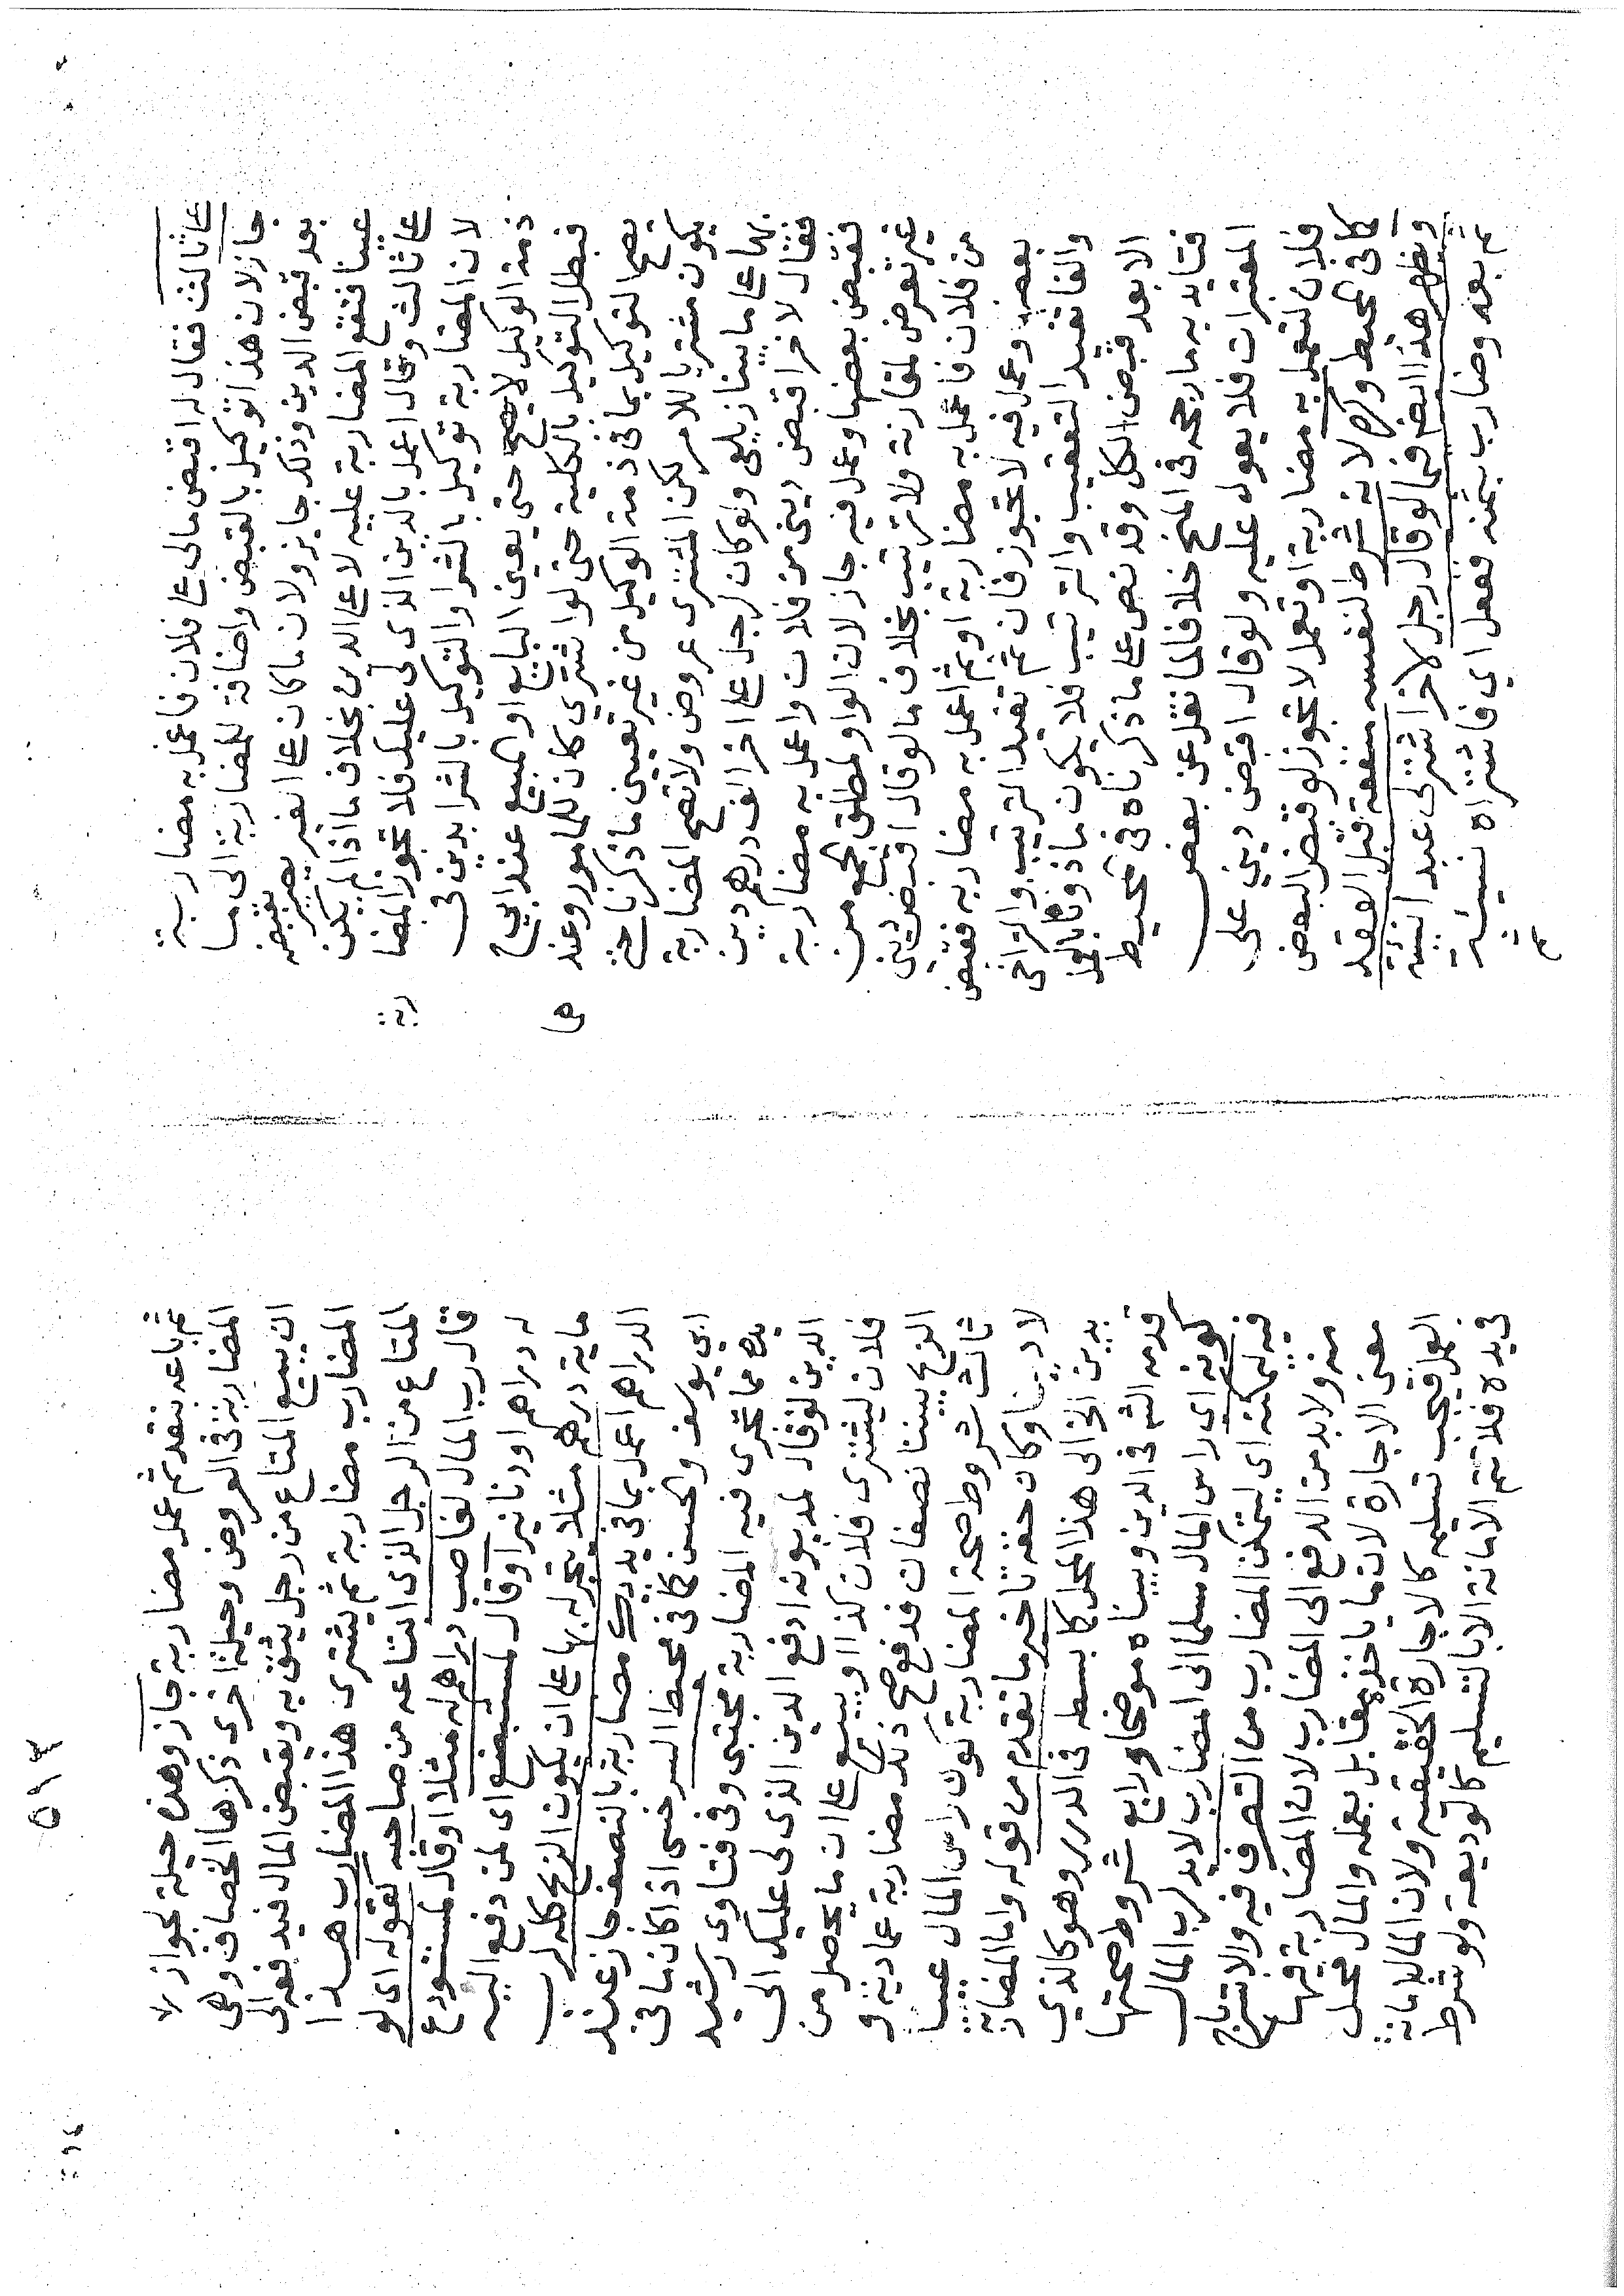 على ثالث فقال له اقبض مالى على فلان فاعمل به مضاربة
جاز لان هذا توكيل بالقبض واضافة للمضاربة الى ما
بعد قبض الدين وذلك جايز ولان ما كان على الغير يصير بقبضه
عينا فتقع المضاربة عليه لا على الدين بخلاف ما اذا لم يكن
على ثالث وقال اعمل بالدين الذى لى عليك فلا تجوز المضا
ربة
لان المضاربة توكيل بالشرا والتوكيل بالشرا بدين فى
ذمة الوكيل لا يصح حتى يعين البايع او المبيع عند ابي ح
فبطل التوكيل بالكلية حتى لو اشترى كان للمامور وعند
هما
يصح التوكيل بما فى ذمة الوكيل من غير تعيين ما ذكرنا حتى
يكون مشتريا للامر لكن المشترى عروض ولا تصح المضاربة
بها على ما بينا زيلعى ولو كان لرجل على اخر الف درهم دين
فقال لاخر اقبض دينى من فلان واعمل به مضاربة
فقبض بعضها وعمل فيه جاز لان الواو لمطلق الجمع من
غير تعرض لمقارنة ولا ترتيب بخلاف ما لو قال اقبض دينى
من فلان فاعمل به مضاربة او ثم اعمل به مضاربه فقبض
بعضه وعمل فيه لا تجوز فان ثم تفيد الترتيب والتراخى
والفا تفيد التعقيب والترتيب فلا يكون ماذونا بالعمل
الا بعد قبض الكل وقد نص على ما ذكرناه فى محيط
فتايد به ما رجحه فى المنح خلافا لما نقل عن بعض
المعتبرات فلا يعول عليه ولو قال اقبض دينى على
فلان لتعمل به مضاربة او تعمل لا تجوز لو قبض البعض
كما فى محيط وكره لانه شرط لنفسه منفعة قبل العقد
ويظهر هذا ايضا فيما لو قال رجل لاخر اشترى عبدا نسيئة
ثم بعه وضارب بثمنه ففعل اي فاشتراه نسيئة
ثم
٥١٤
ثم باعه بنقد ثم عمل مضاربة جاز وهذه حيلة لجواز
المضاربة فى العروض وحيلة اخرى ذكرها الخصاف وهى
ان يبيع المتاع من رجل يثق به ويقبض المال فيدفعه الى
المضارب مضاربة ثم يشترى هذا المضارب هذا
المتاع من الرجل الذى ابتاعه من صاحبه لقوله اى لو
قال رب المال لغاصب دراهم له مثلا او قال لمستودع
له دراهم او دنانير او قال لمستبضع اى لمن دفع اليه
ماية درهم مثلا يتجر له بها على ان يكون الربح كله لرب
الدراهم اعمل بما فى يدك مضاربة بالنصف جاز عند
ابي يوسف والحسن كما فى محيط السرخسى اذا كان ما فى
يده مما تجرى فيه المضاربة مجتبى وفى فتاوى رشيد
الدين لو قال لمديونه ادفع الدين الذى لى عليك الى
فلان ليشترى فلان كذا او يبيع على ان ما يحصل من
الربح بيننا نصفان فدفع صح ذلك مضاربة عمادية و
ثالث شروط صحة المضاربة كون راس المال عينا
لا دينا وكان حقه تاخير ما تقدم من قوله واما المضاربة
بدين الخ الى هذا المحل كما بسطه فى الدرر وهو كالذي
قدمه الشر فى الدين وبيناه موضحا ورابع شروط صحتها
كونه اي راس المال سلما الى المضارب لا يد لرب المال
فيه ليمكنه اي ليتمكن المضارب من التصرف فيه والاسترباح
منه ولا بد من الدفع الى المضارب لان المضاربة فيها
معنى الاجارة لان ما ياخذه مقابل بعمله والمال محل
العمل فيجب تسليمه كالاجارة الحقيقية ولان المال امانة
فى يده فلا تتم الامانة الا بالتسليم كالوديعة ولو شرط